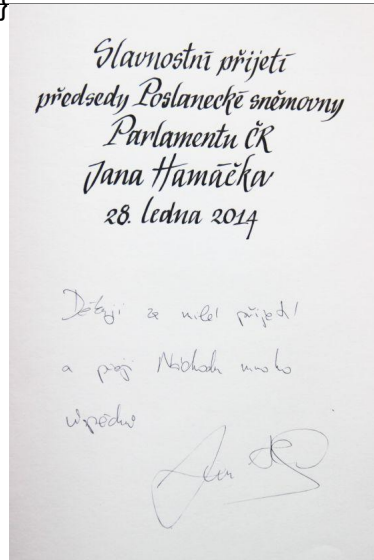 }
Slavnostní přijetí
předsedy Poslanecké sněmovny
Parlamentu ČR
Jana Hamáčka
28. ledna 2014
Děkuji za milé přijetí
a přeji Náchodu mnoho
úspěchů